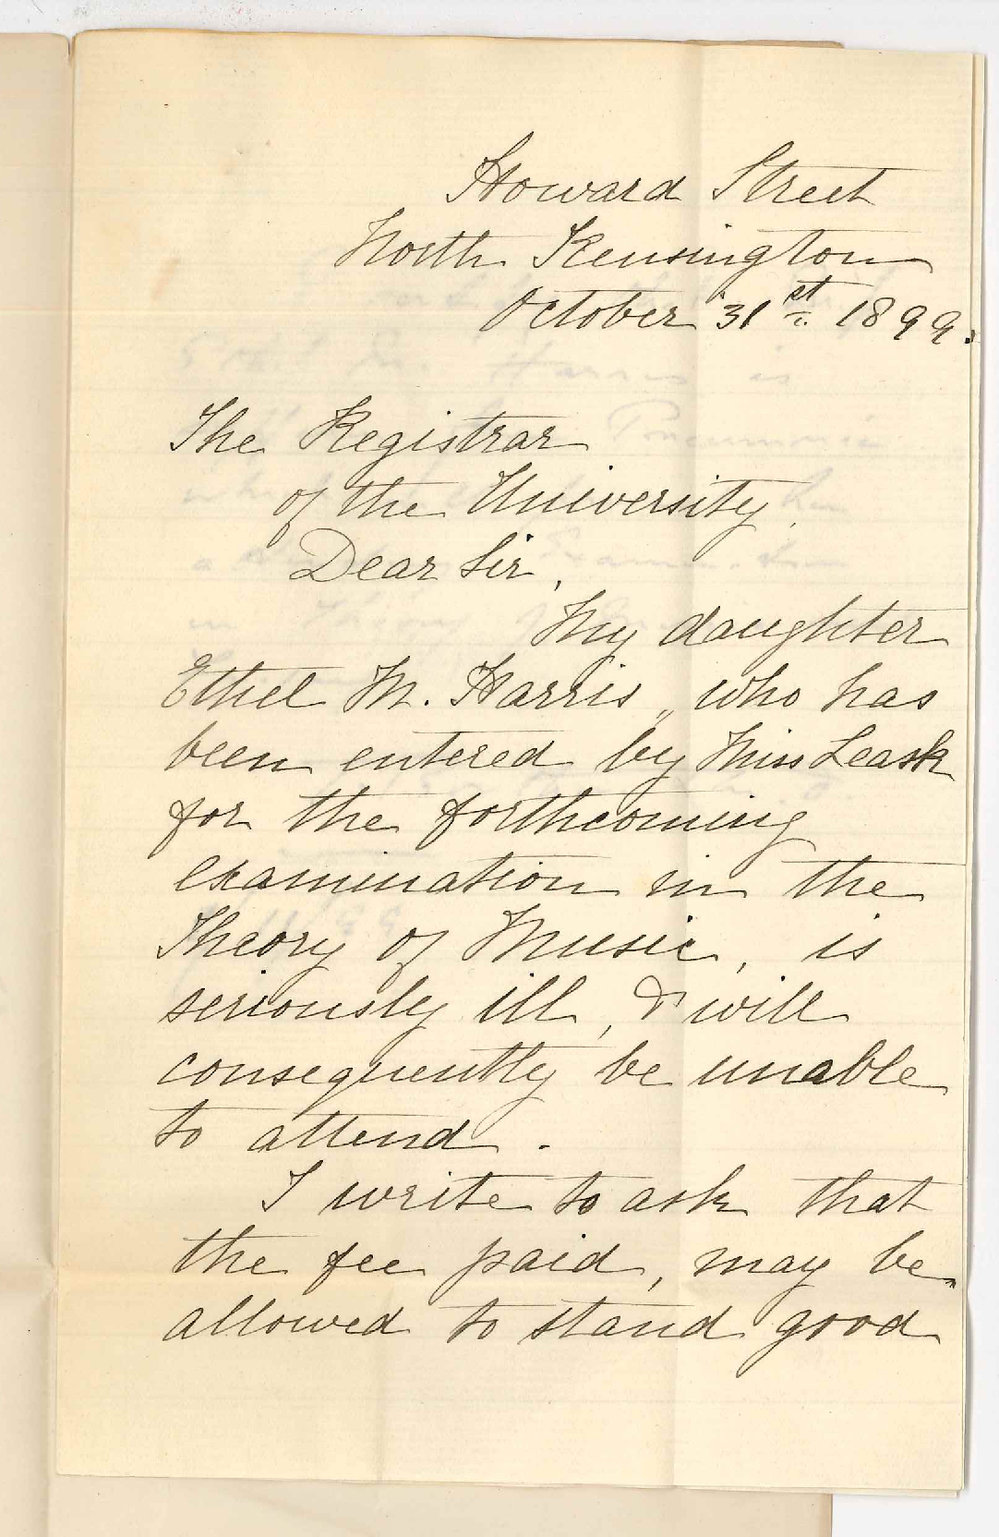 Howard Street
North Kensington
October 31st 1899.
The Registrar
of the University.
Dear Sir,
My daughter
Ethel M. Harris, who has
been entered by Miss Leask
for the forthcoming
examination in the
Theory of Music, is
seriously ill, & will
consequently be unable
to attend.
I write to ask that
the fee paid, may be
allowed to stand good